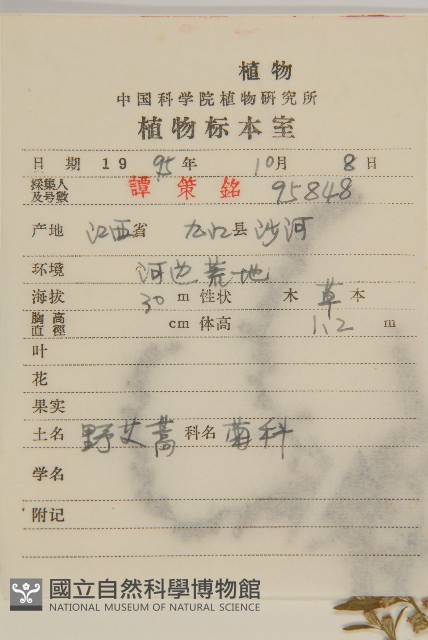 植物
中国科学院植物研究所
植物标本室
日期 1995年 10月 8日
採集人及号数 譚策銘 95848
产地 江西省 九江县 沙河
环境 河边荒地
海拔 30 m 性状 木 草 本
胸高直徑 cm 体高 1.2 m
叶
花
果实
土名 野艾蒿 科名 菊科
学名
附记
國立自然科學博物館
NATIONAL MUSEUM OF NATURAL SCIENCE